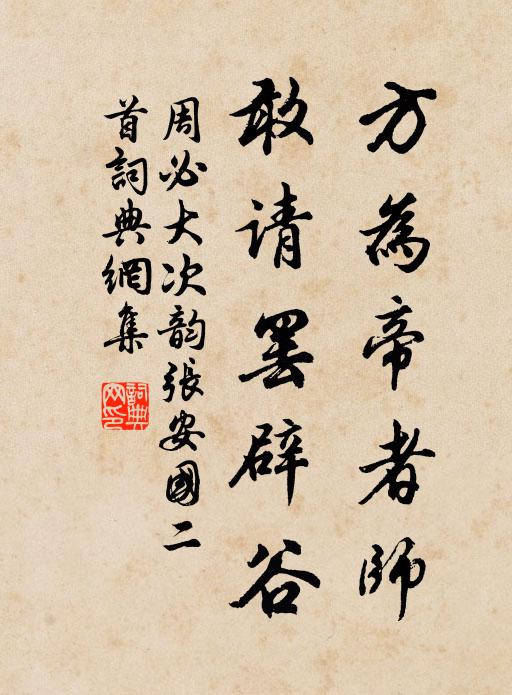 方為帝者師
敢请罢辟谷
周必大次韵張安國二
首詞典網集
詞典网印